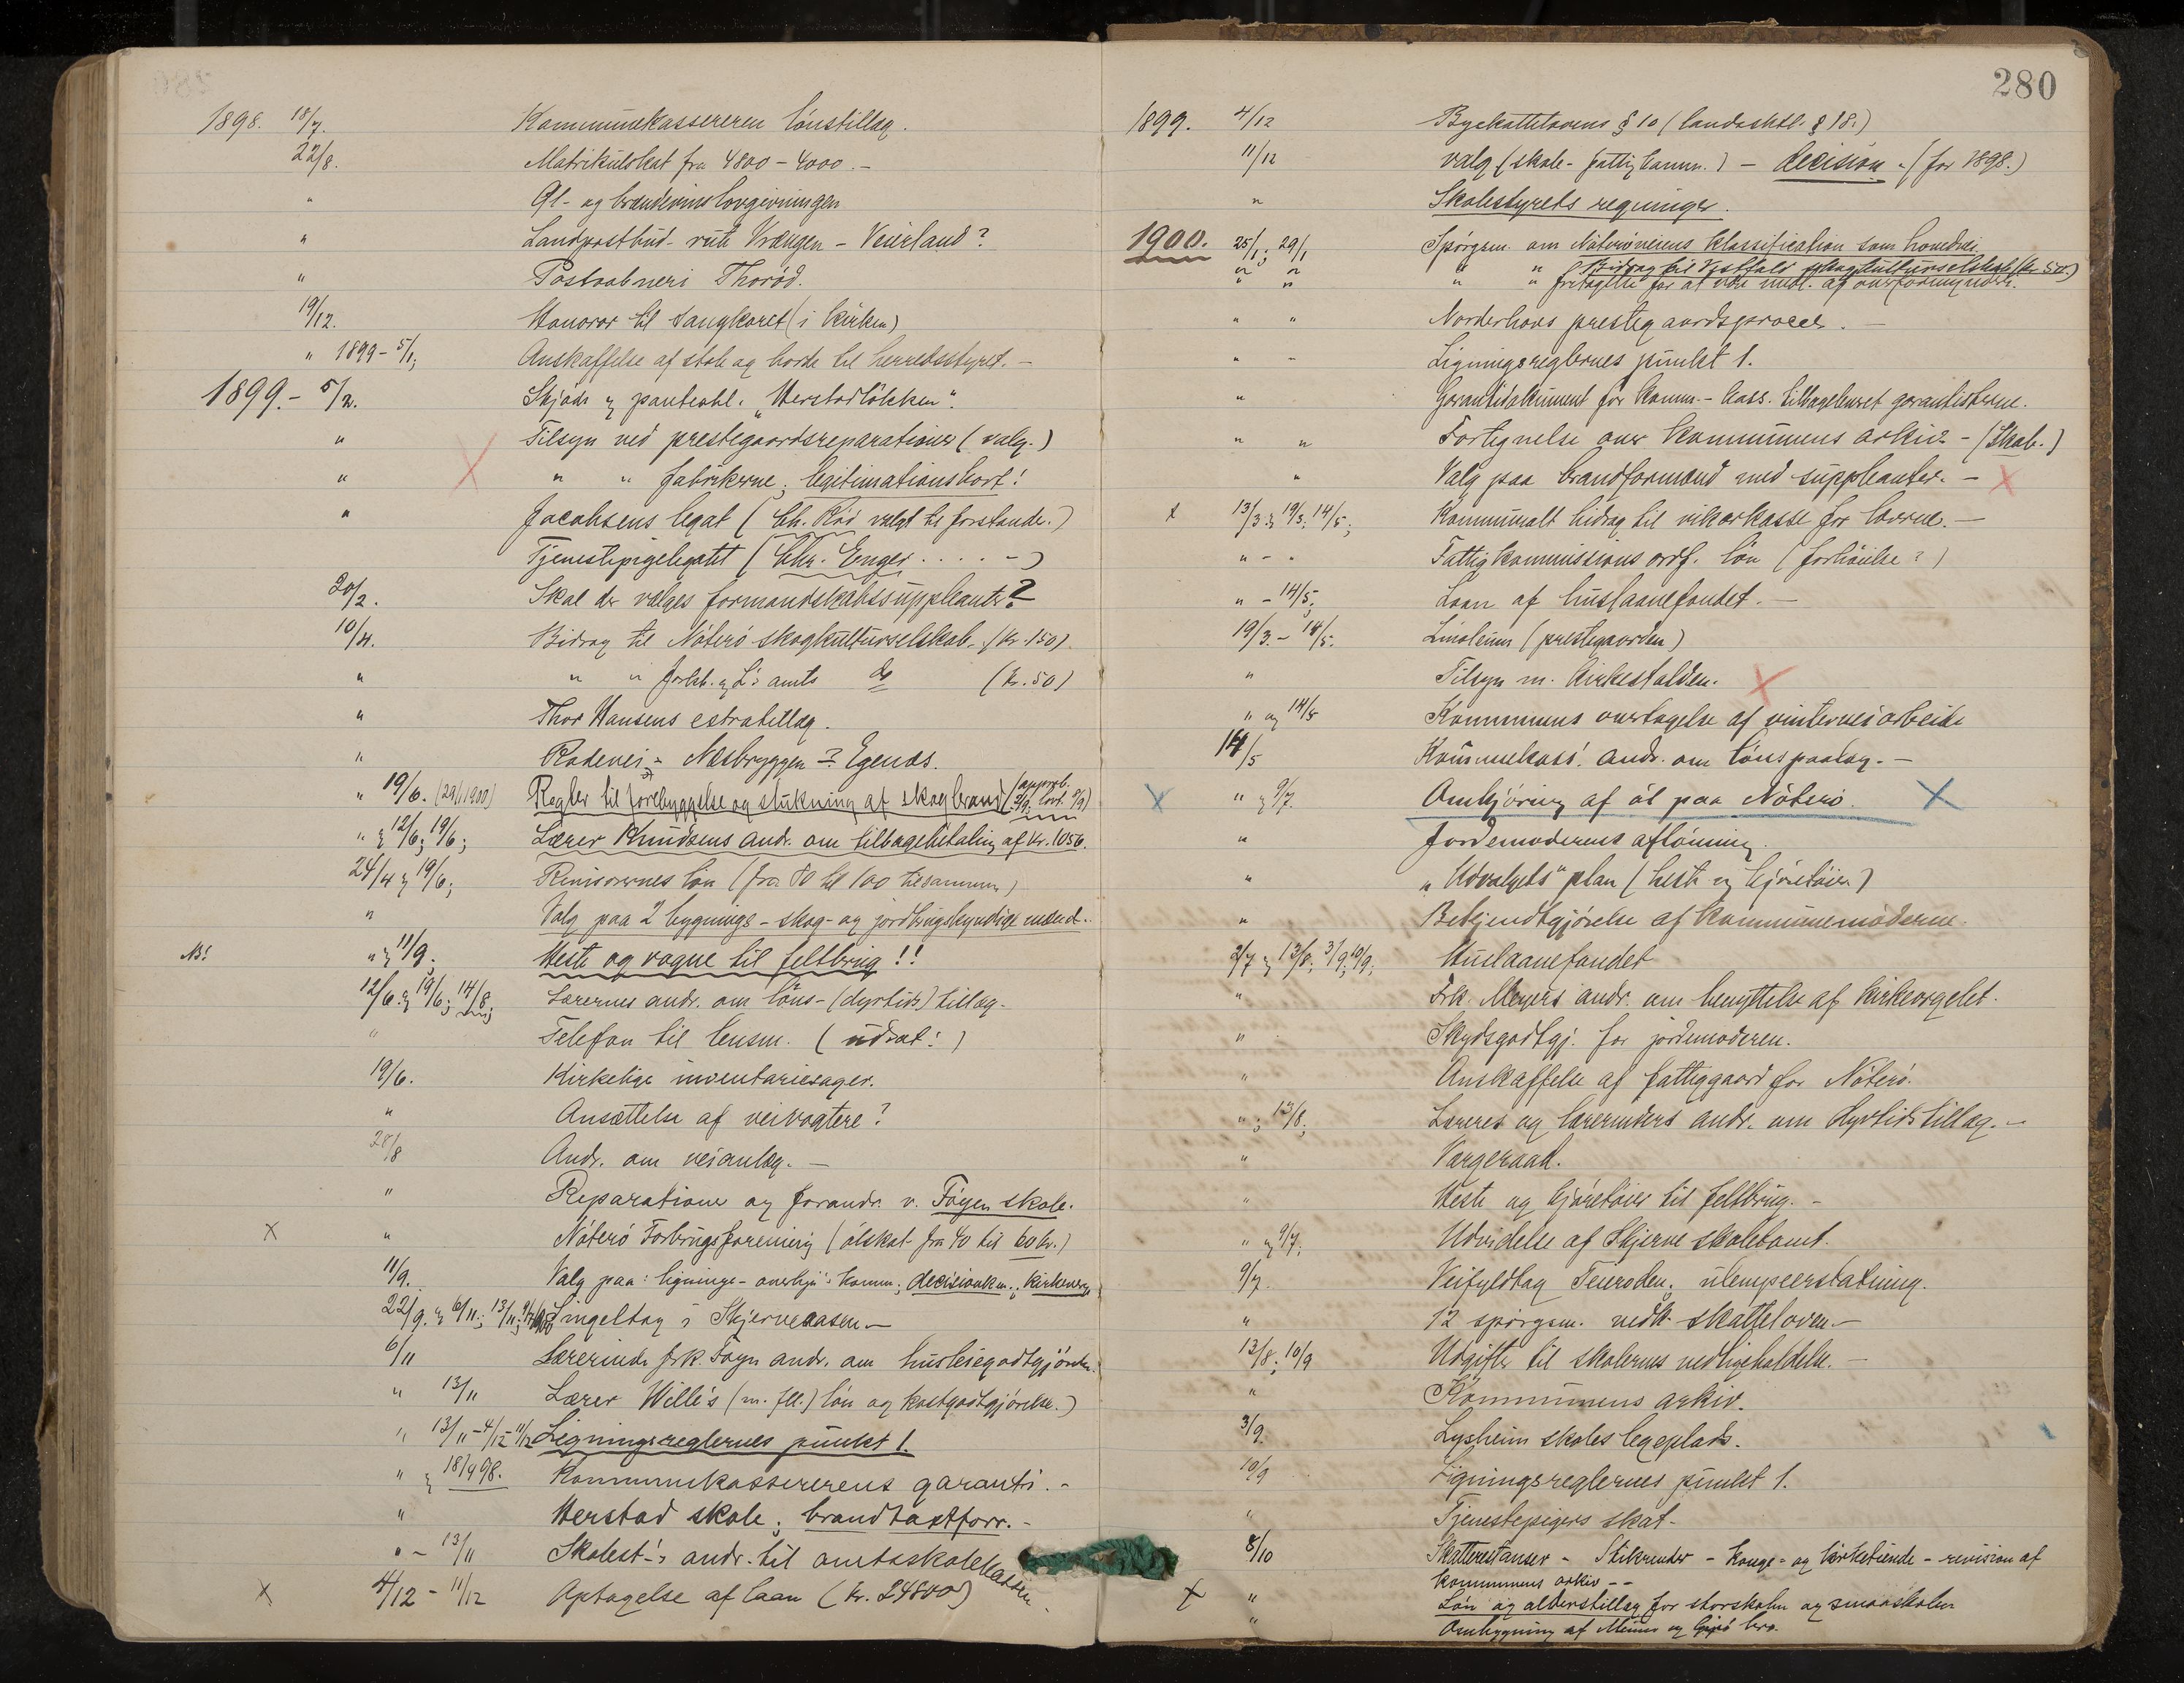 1898. 18/7. Kommunekassereren lönstillæg.
22/8. Matrikulskat fra 4800 - 4000. -
" Öl- og brændevinslovgivningen
" Landpostbud- rute Vrængen - Veierland?
" Postaabneri Thoröd.
19/12. Honorar til sangkoret (i kirken)
" 1899 - 5/1; Anskaffelse af stole og borde til herredsstyret. -
1899. - 5/2. Skjöde og panteobl. "Herstadlökken".
" Tilsyn ved prestegaardsreparationer (valg.)
" " " fabrikerne; legitimationskort!
" Jacobsens legat (Ch. Röd valgt til forstander.)
Tjenestepigelegatet (Chr. Enger . . . . -)
20/2. Skal der vælges formandskabssuppleanter?
10/4. Bidrag til Nöterö skogkulturselskab. (Kr. 150).
" " " Jarlsb. og L's amts do (Kr. 50)
" Thor Hansens extratillæg.
" Rodevei - Næsbryggen - ? Egenæs.
" 19/6. (29/1 1900) Regler til forebyggelse og slukning af skogbrand (approb.
" og 12/6; 19/6; Lærer Knudsens andr. om tilbagebetaling af Kr. 1056.
24/4 og 19/6; Revisorernes lön (fra 80 til 100 tilsammen)
" Valg paa 2 bygnings- skog- og jordbrugskyndige mænd.
NB! " og 11/9. Heste og vogne til feltbrug!!
12/6. og 19/6; 14/8; Lærernes andr. om löns- (dyrtids) tillæg.
" Telefon til lensm. (udsat!)
19/6. Kirkelige inventariesager.
" Ansættelse af veivogtere?
28/8 Andr. om veianlæg. -
" Reparationer og forandr. v. Föyen skole.
X " Nöterö Forbrugsforening (ölskat fra 40 til 60 kr.)
11/9. Valg paa: lignings- overlign's komm; decisionkm.; kirkeverge
22/9. og 6/11.; 13/11; Singeltag i Skjerveaasen -
6/11 Lærerinde frk. Föyn andr. om husleiegodtgjörelse.
" 13/11 Lærer Wille's (m. fl.) lön og kostgodtgjörelse.)
" 13/11 - 4/12 - 11/12 Ligningsreglernes punkt 1.
" og 18/4 98. Kommunekassererens garanti. -
" Herstad skole; brandtaxtforr. -
" - 13/11 Skolest's andr. til amtsskolekassen.
X 4/12 - 11/12 Optagelse af laan (kr. 24800)
280
1899. 4/12 Byskattelovens § 10 (landsskttl. § 18.)
11/12 Valg (skole- fattigkomm.) - decision - (for 1898.)
" Skolestyrets regninger.
1900. 25/1; 29/1 Spörgsm. om Nöteröveiens klassification som hovedvei
" " " " Bidrag til Vestfold skogkulturselskab (Kr. 50.)
" " " " fritagelse for at være medl. af overformynderi.
" " Norderhovs prestegaardsproces. -
" - Ligningsreglernes punkt 1.
" Garantidokument for komm.-kass. tilbageleveret garantisterne.
" " Fortegnelse over kommunens arkiv - (Skab.)
" Valg paa brandformænd med suppleanter. - X
x 13/3. og 19/3; 14/5; Kommunalt bidrag til vikarkasse for lærere. -
" - " Fattigkommissions ordf. lön (forhöielse?)
" - 14/5; Laan af huslaanefondet. -
19/3. - 14/5. Linoleum (prestegaarden)
" Tilsyn m. kirkestalden. X
" og 14/5 Kommunens overtagelse af vinterveiarbeide
14/5 Kommunekass' andr. om lönspaalæg. -
X " og 9/7. Omkjöring af öl paa Nöterö. X
" Jordemoderens aflönning.
" "Udvalgets" plan (heste og kjöretöier)
" Bekjendtgjörelse af kommunemöderne.
2/7 og 13/8; 3/9; 10/9; Huslaanefondet
" Frk. Meyers andr. om benyttelse af kirkeorgelet.
" Skydsgodtgj. for jordemoderen.
" Anskaffelse af fattiggaard for Nöterö.
"; 13/8; Læreres og lærerinders andr. om dyrtidstillæg. -
" Vergeraad.
" Heste og kjöretöier til feltbrug. -
" og 9/7; Udvidelse af Skjerve skoletomt.
9/7. Veifyldtag Teieroden; ulempeerstatning.
" 12 spörgsm. vedk. skatteloven. -
13/8; 10/9 Udgifter til skolernes vedligeholdelse. -
" Kommunens arkiv.
3/9. Lysheim skoles legeplads.
10/9 Ligningsreglernes punkt 1.
" Tjenestepigers skat.
8/10 Skatterestanser - Stikrender - Konge- og kirketiende - revision af
kommunens arkiv - -
x " Lön og alderstillæg for storskolen og smaaskolen
" Ombygning af bro.